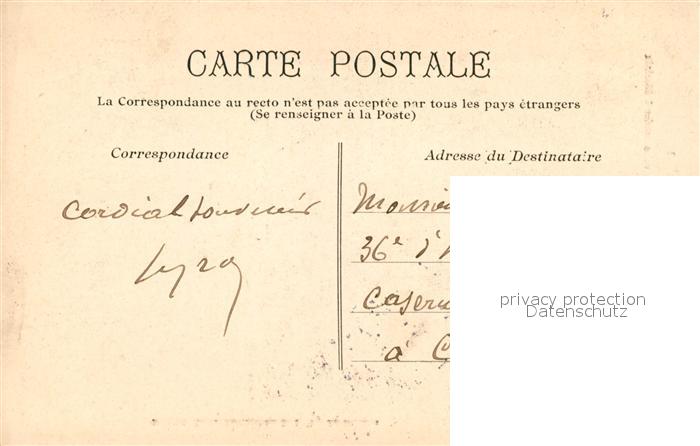 CARTE POSTALE
La Correspondance au recto n'est pas acceptée par tous les pays étrangers
(Se renseigner à la Poste)
Correspondance
Adresse du Destinataire
Cordial souvenir
36e d'
à C
privacy protection
Datenschutz